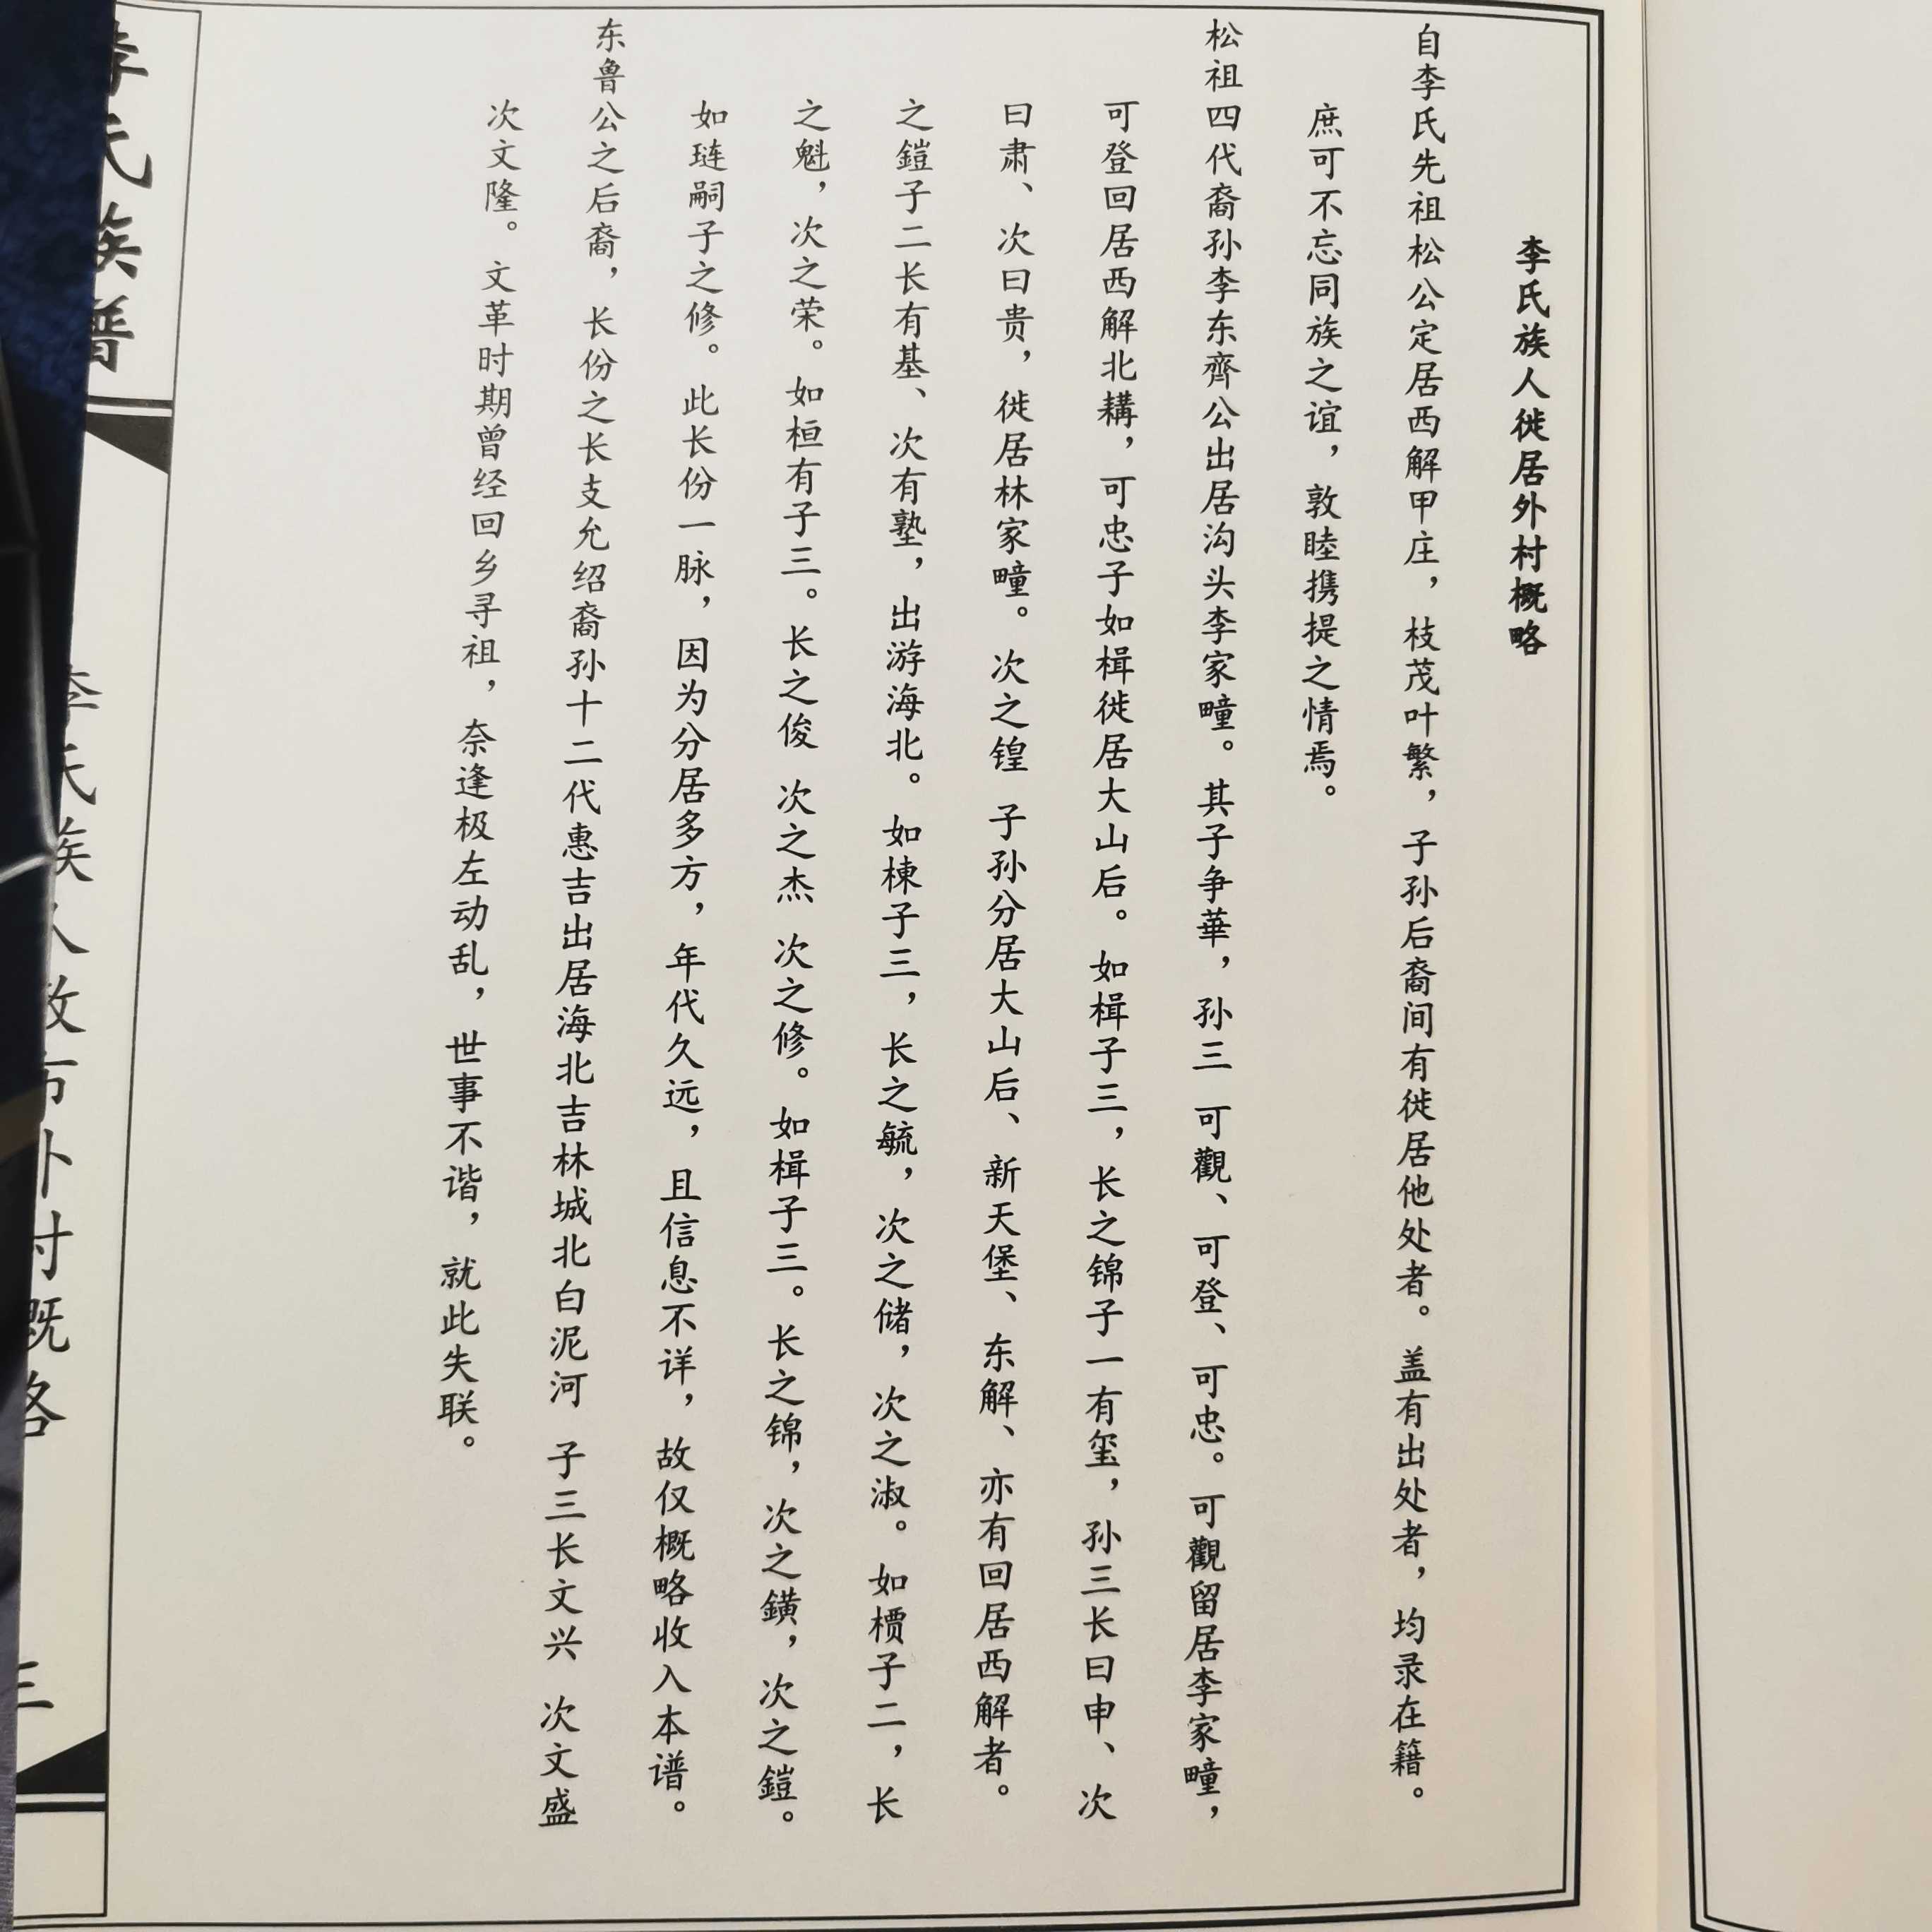 李氏族人徙居外村概略
自李氏先祖松公定居西解甲庄，枝茂叶繁，子孙后裔间有徙居他处者。盖有出处者，均录在籍。
庶可不忘同族之谊，敦睦携提之情焉。
松祖四代裔孙李东齊公出居沟头李家疃。其子争華，孙三 可觀、可登、可忠。可觀留居李家疃，
可登回居西解北耩，可忠子如楫徙居大山后。如楫子三，长之锦子一有玺，孙三长曰申、次
曰肃、次曰贵，徙居林家疃。次之锽 子孙分居大山后、新天堡、东解、亦有回居西解者。
之鎧子二长有基、次有塾，出游海北。如棟子三，长之毓，次之储，次之淑。如樌子二，长
之魁，次之荣。如桓有子三。长之俊 次之杰 次之修。如楫子三。长之锦，次之鐄，次之鎧。
如琏嗣子之修。此长份一脉，因为分居多方，年代久远，且信息不详，故仅概略收入本谱。
东鲁公之后裔，长份之长支允绍裔孙十二代惠吉出居海北吉林城北白泥河 子三长文兴 次文盛
次文隆。文革时期曾经回乡寻祖，奈逢极左动乱，世事不谐，就此失联。
李氏族谱
李氏族人散布外村概略
三